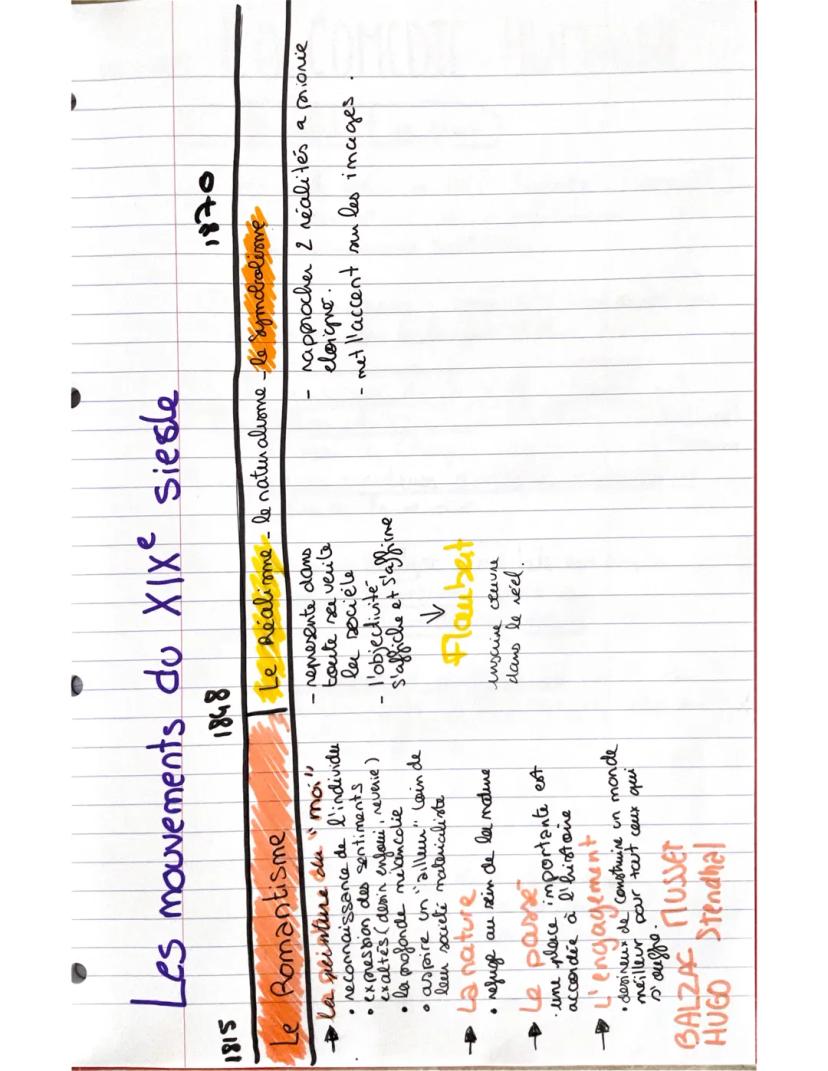 Les mouvements du XIXe siesle
1815
1848
1870
Le Romantisme
Le Réalisme - le naturalisme - le symbolisme
→ La peinture du "moi"
• reconnaissance de l'individu
• expression des sentiments
exaltés (desir enfoui, reverie)
• la profonde melencolie
• aspire un "ailleur" loin de
leur société matericaliste
→ La nature
• refuge au sein de la nature
→ Le passé
• une place importante est
accordée à l'histoire
→ L'engagement
• desireux de construire un monde
meilleur pour tout ceux qui
souffre.
BALZAC MUSSET
HUGO Stendhal
- represente dans
toute sa verite
la societe
- l'objectivité
s'affiche et s'affirme
↓
Flaubert
inscrire œuvre
dans le réel.
- rapprocher 2 réalités a priorie
eloigne.
- met l'accent sur les images.